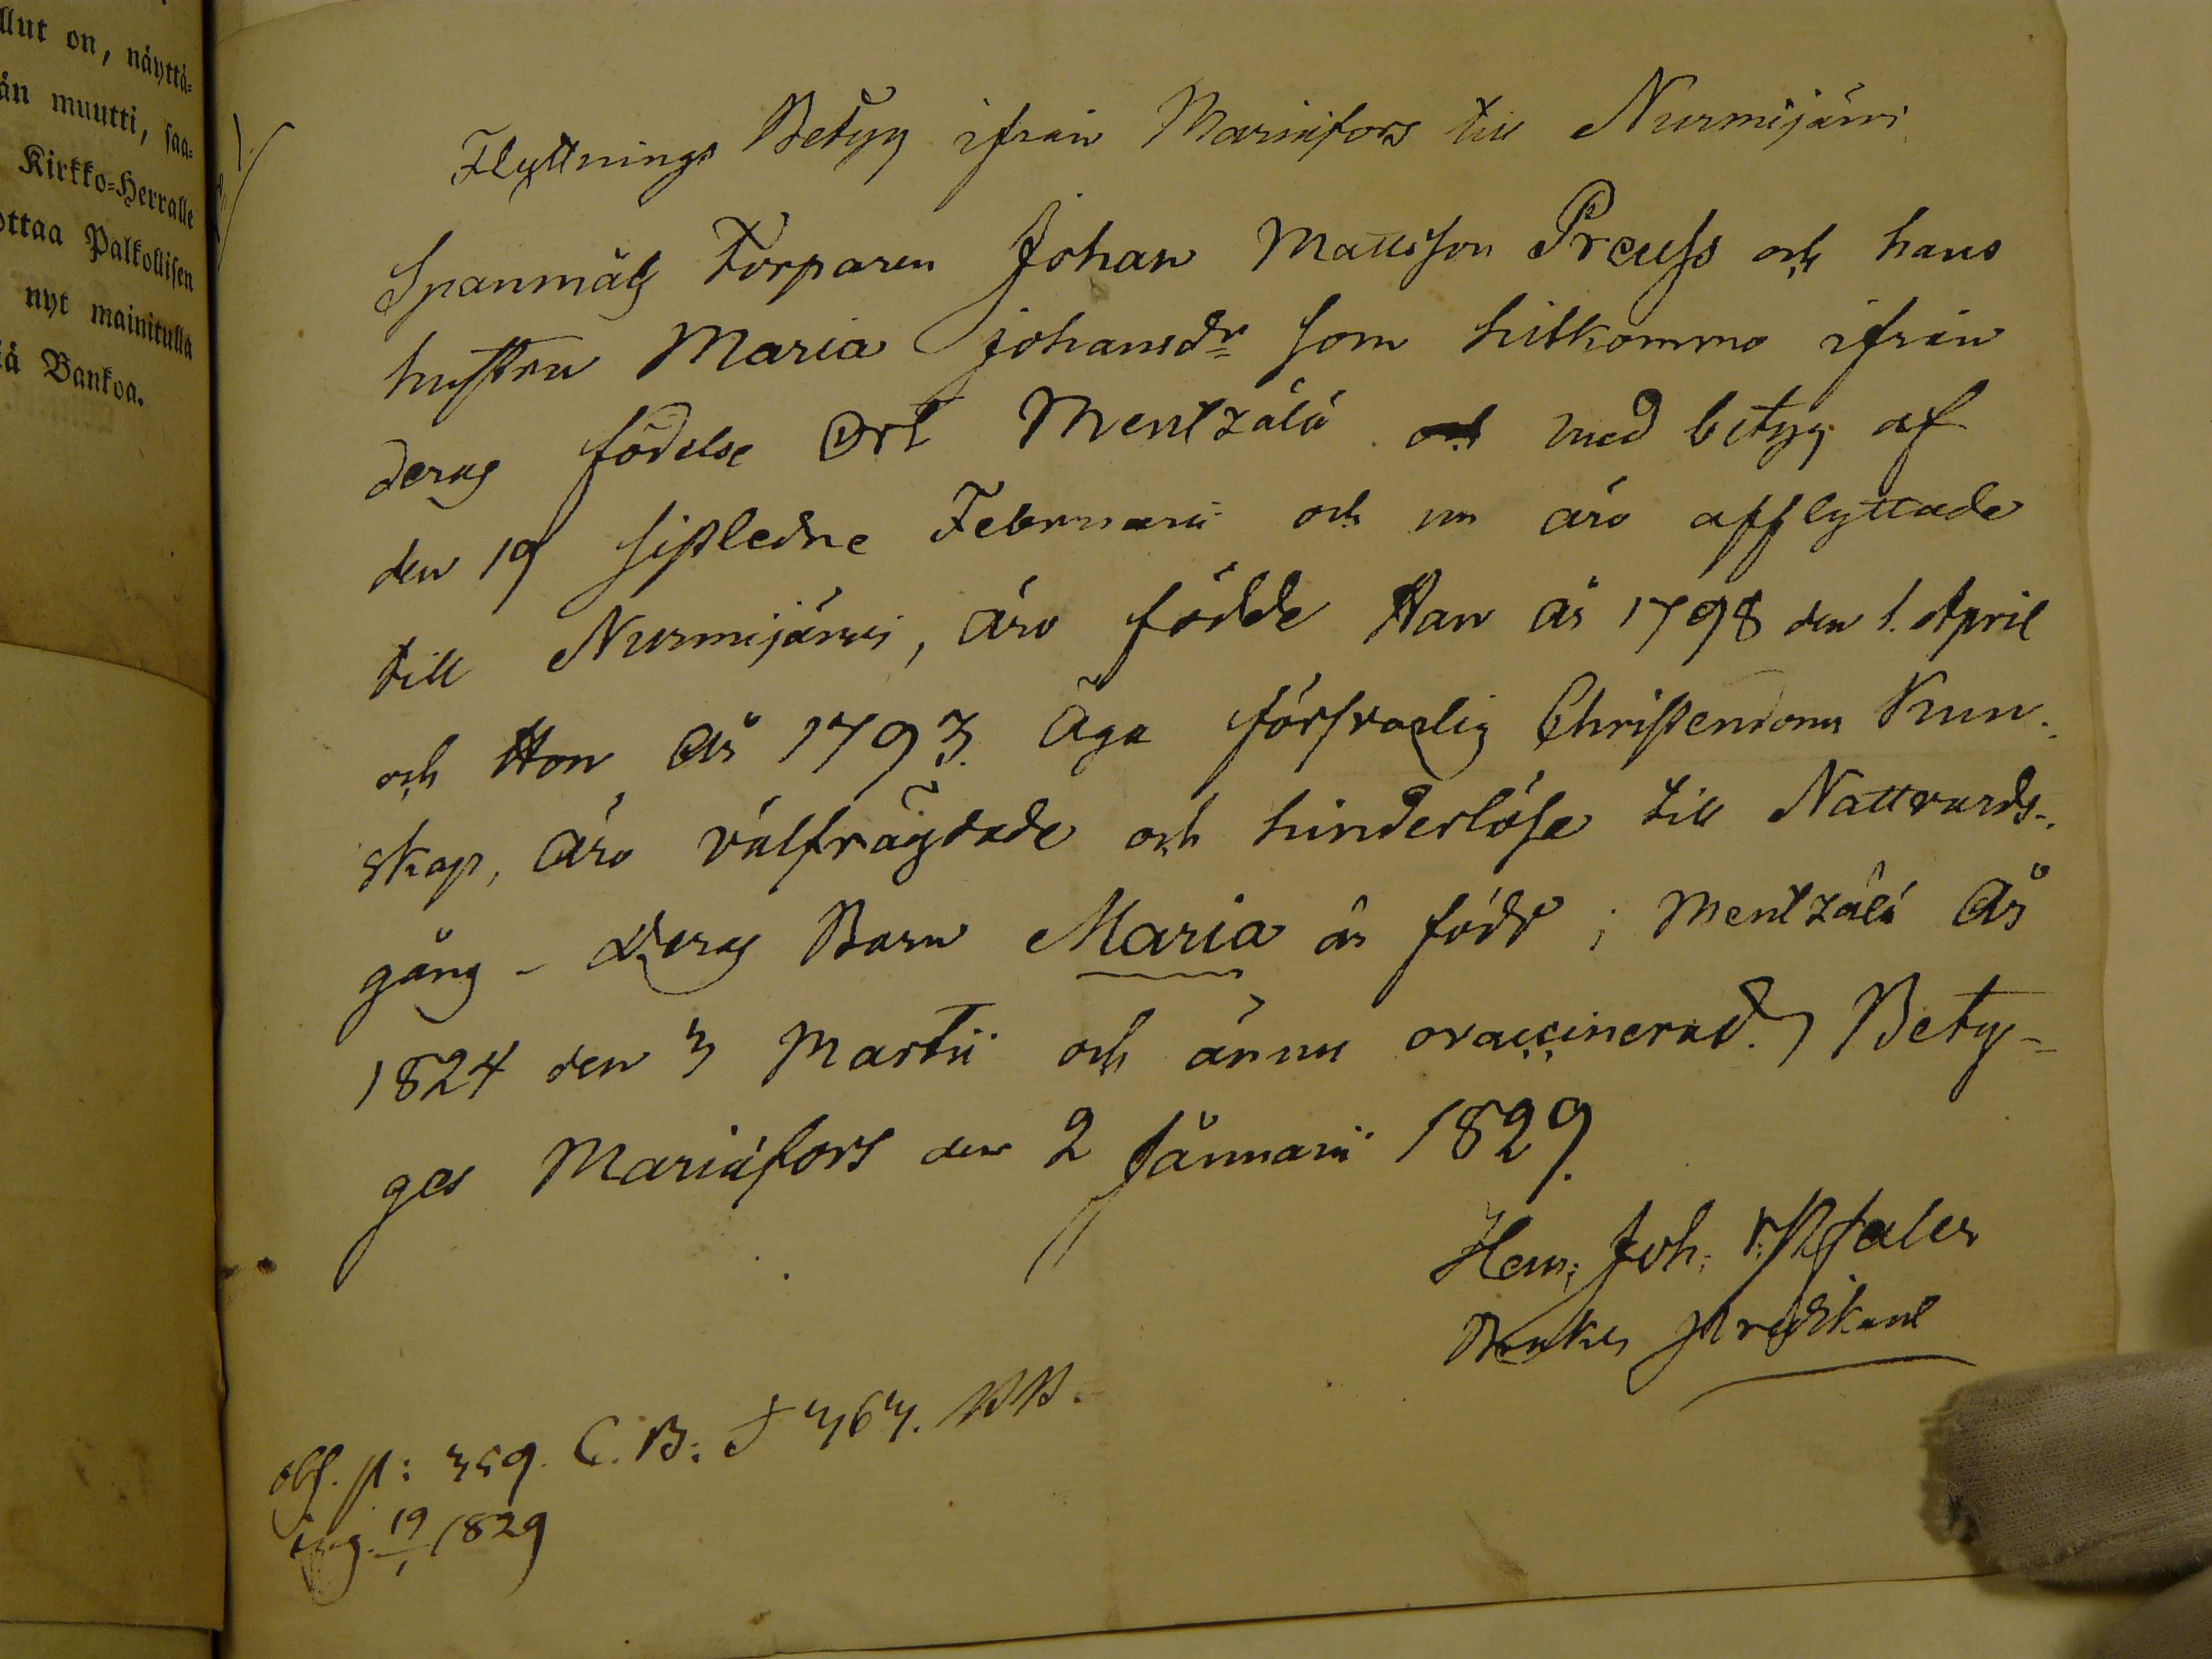 llut on, näyttä-
än muutti, saa-
Kirkko-Herralle
ottaa Palkollisen
nyt mainitulla
iä Bankoa.
Flyttnings Betyg ifrån Mariäfors till Nurmijärvi
Spanmåls Torparen Johan Mattsson Preuss och hans
hustru Maria Johansdr som hitkommo ifrån
deras födelse Ort Mentzälä med betyg af
den 19 sistledne Februarii och nu äro afflyttade
till Nurmijärvi, äro födde Han år 1798 den 1. April
och Hon år 1793. Äga försvarlig Christendoms Kun-
skap, äro välfrägdade och hinderlöse till Nattvards-
gång - Deras Barn Maria är född i Mentzälä År
1824 den 3 Martii och ännu ovaccinerad. Bety-
ges Mariäfors den 2 Januarii 1829.
Joh:
Bruks Predikant
obs. p: 359. C.B:
ing. 19/1 1829